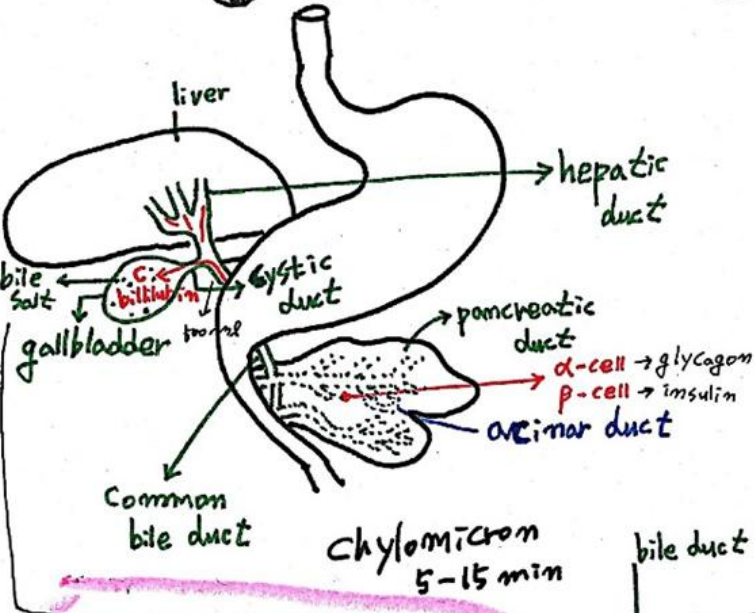 liver
hepatic
duct
bile
salt
C
bilirubin
gallbladder
Cystic
duct
pancreatic
duct
α-cell → glycagon
β-cell → insulin
arcinar duct
Common
bile duct
Chylomicron
5-15 min
bile duct